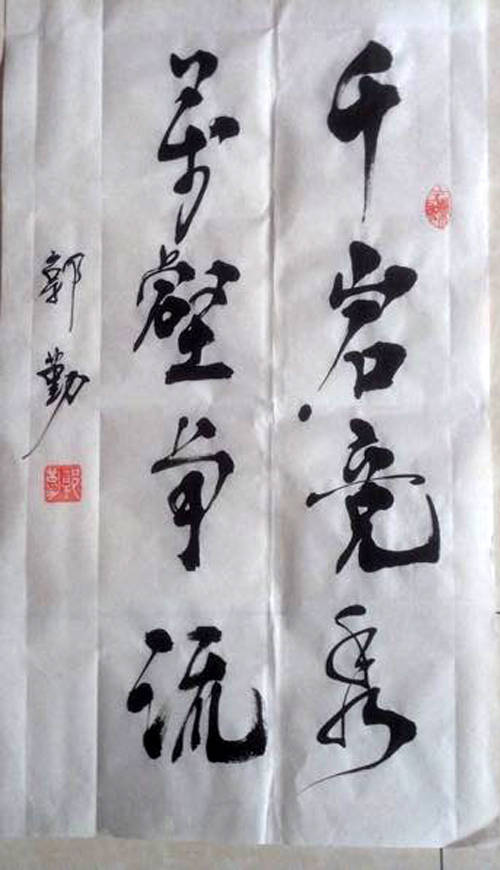 千岩竞秀
萬壑争流
郭勤